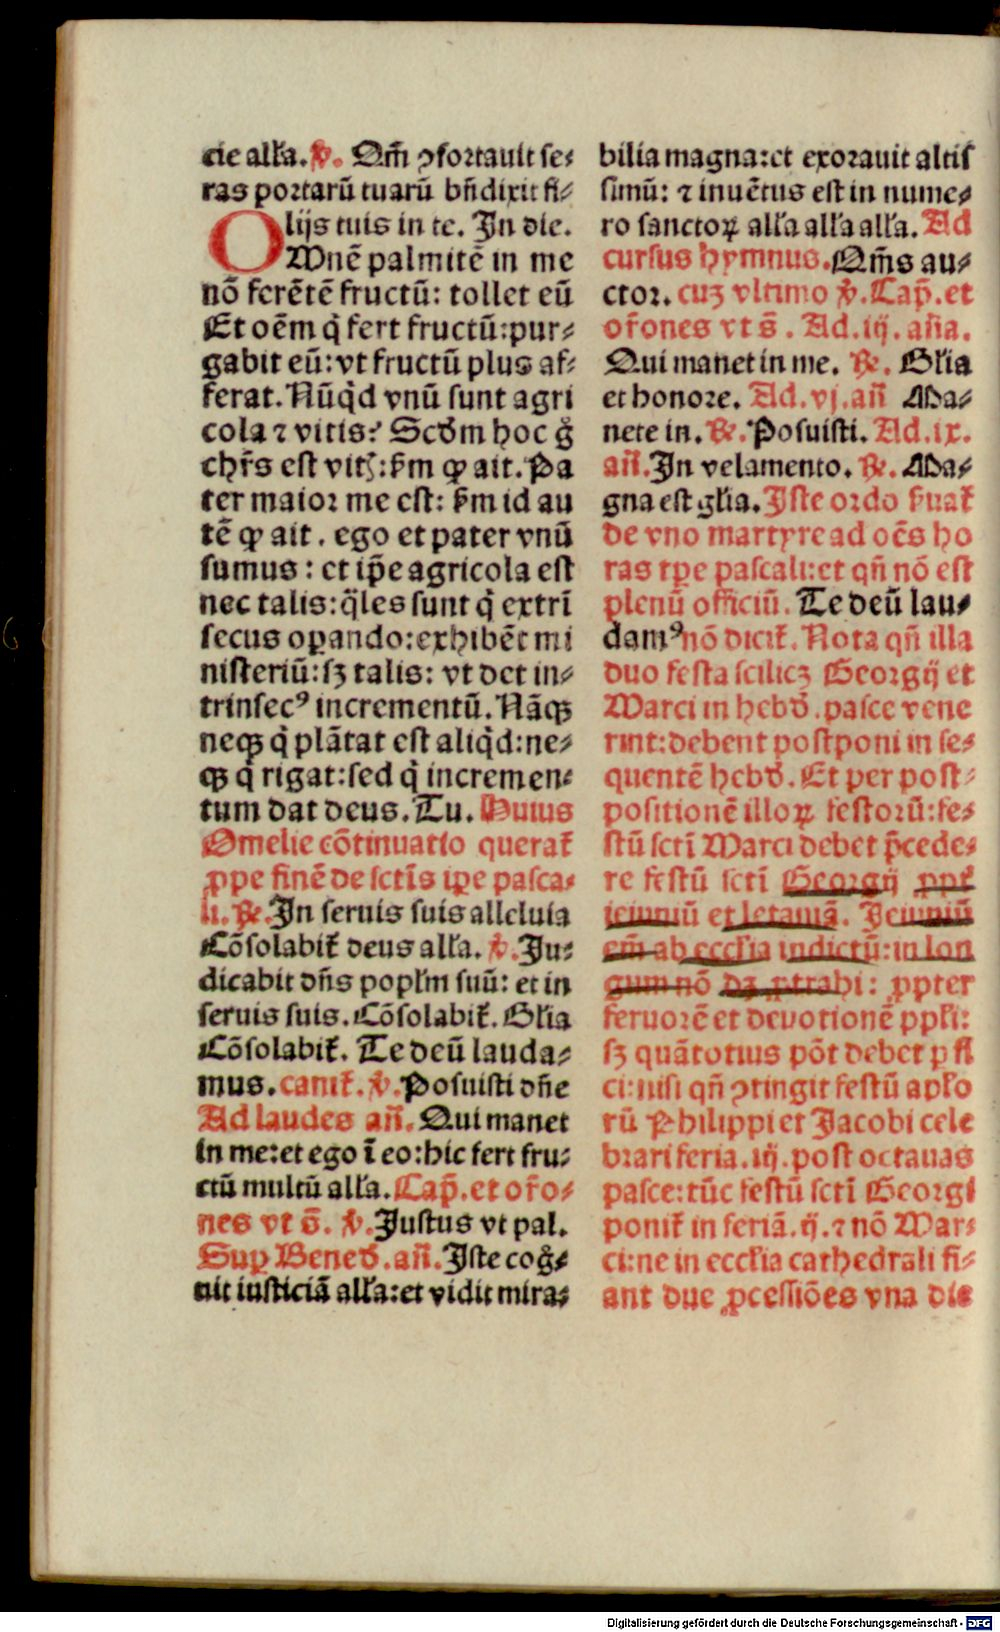 cie alła. ꝟ. Qm̄ ꝯfortauit se⸗
ras portarū tuarū bn̄dixit fi⸗
lijs tuis in te. In die.
OMnē palmitē in me
nō ferētē fructū: tollet eū
Et oēm q̇ fert fructū: pur⸗
gabit eū: vt fructū plus af⸗
ferat. Nūq̇d vnū sunt agri
cola ⁊ vitis? Scd̄m hoc g̊
chr̄s est vitꝭ: s̄m ꝙ ait. Pa
ter maior me est: s̄m id au
tē ꝙ ait. ego et pater vnū
sumus: et ip̄e agricola est
nec talis: q̄les sunt q̇ extrī
secus oꝑando: exhibēt mi
nisteriū: sꝫ talis: vt det in⸗
trinsecꝰ incrementū. Nāqꝫ
neqꝫ q̇ plātat est aliq̇d: ne⸗
qꝫ q̇ rigat: sed q̇ incremen⸗
tum dat deus. Tu. Huius
Omelie cōtinuatio querat̄
ꝓpe finē de sctīs tꝑe pasca⸗
li. ℟. In seruis suis alleluia
Cōsolabit̄ deus alła. ꝟ. Ju⸗
dicabit dn̄s popłm suū: et in
seruis suis. Cōsolabit̄. Glia
Cōsolabit̄. Te deū lauda⸗
mus. canit̄. ꝟ. Posuisti dn̄e
Ad laudes an̄. Qui manet
in me: et ego ī eo: hic fert fru⸗
ctū multū alła. Cap̄. et or̄o⸗
nes vt s̄. ꝟ. Justus vt pal.
Suꝑ Bened̄. an̄. Iste cog̊⸗
uit iusticiā alła: et vidit mira⸗
bilia magna: et exorauit altis
simū: ⁊ inuētus est in nume⸗
ro sanctoꝝ alła alła alła. Ad
cursus hymnus. Qm̄s au⸗
ctor. cuꝫ vltimo ꝟ. Cap̄. et
or̄ones vt s̄. Ad .iij. an̄a.
Qui manet in me. ℟. Glia
et honore. Ad .vj. an̄ Ma⸗
nete in. ℟. Posuisti. Ad .ix.
an̄. In velamento. ℟. Ma⸗
gna est glia. Iste ordo s̄uat̄
de vno martyre ad oēs ho
ras tꝑe pascali: et qn̄ nō est
plenū officiū. Te deū lau⸗
damꝰ nō dicit̄. Nota qn̄ illa
duo festa scilicꝫ Georgij et
Marci in hebd̄. pasce vene
rint: debent postponi in se⸗
quentē hebd̄. Et per post⸗
positionē illoꝝ festorū: fe⸗
stū sctī Marci debet p̄cede⸗
re festū sctī Georgij ꝓpt̄
ieiuniū et letaniā. Jeiuniū
em̄ ab eccłia indictū: in lon
gum nō dꝫ ꝓtrahi: ꝓpter
feruorē et deuotionē ppłi:
sꝫ quātotius pōt debet ꝑfi
ci: nisi qn̄ ꝯtingit festū apło
rū Philippi et Jacobi cele
brari feria .iij. post octauas
pasce: tūc festū sctī Georgi
ponit̄ in feriā .ij. ⁊ nō Mar⸗
ci: ne in eccłia cathedrali fi⸗
ant due ꝓcessiōes vna die
Digitalisierung gefördert durch die Deutsche Forschungsgemeinschaft - DFG